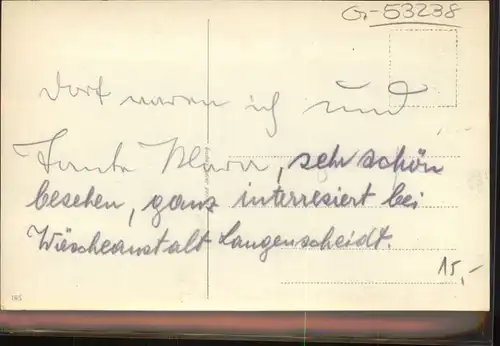 G-53238
Dort waren ich und
Tante Klara, sehr schön
besehen, ganz interresiert bei
Wäscheanstalt Langenscheidt.
15,-
185